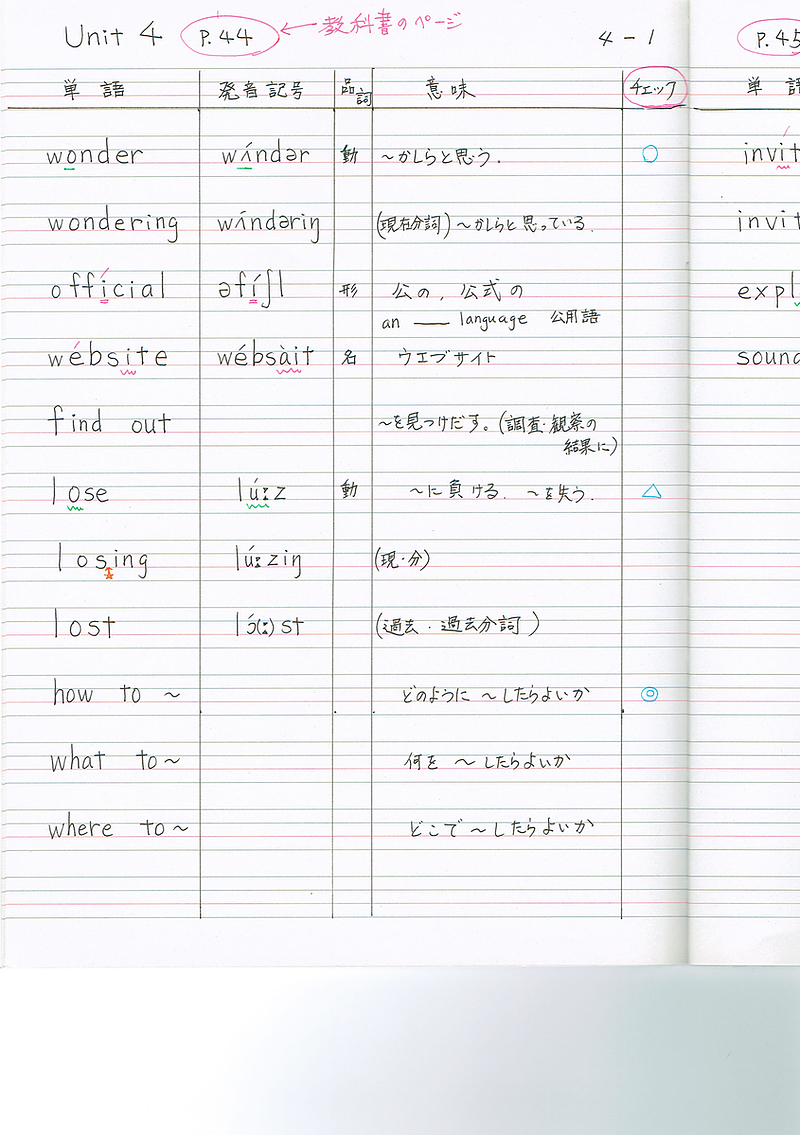 Unit 4 P.44 ← 教科書のページ 4-1 P.45
単語 発音記号 品詞 意味 チェック 単語
wonder wʌ́ndər 動 ~かしらと思う. ○ invit
wondering wʌ́ndəriŋ (現在分詞)~かしらと思っている. invit
official əfíʃl 形 公の, 公式の expl
an ― language 公用語
wébsite wébsàit 名 ウエブサイト soun
find out ~を見つけだす。(調査・観察の
結果に)
lose lúːz 動 ~に負ける. ~を失う. △
losing lúːziŋ (現・分)
lost lɔ́(ː)st (過去・過去分詞)
how to ~ どのように ~したらよいか ◎
what to~ 何を ~したらよいか
where to~ どこで~したらよいか